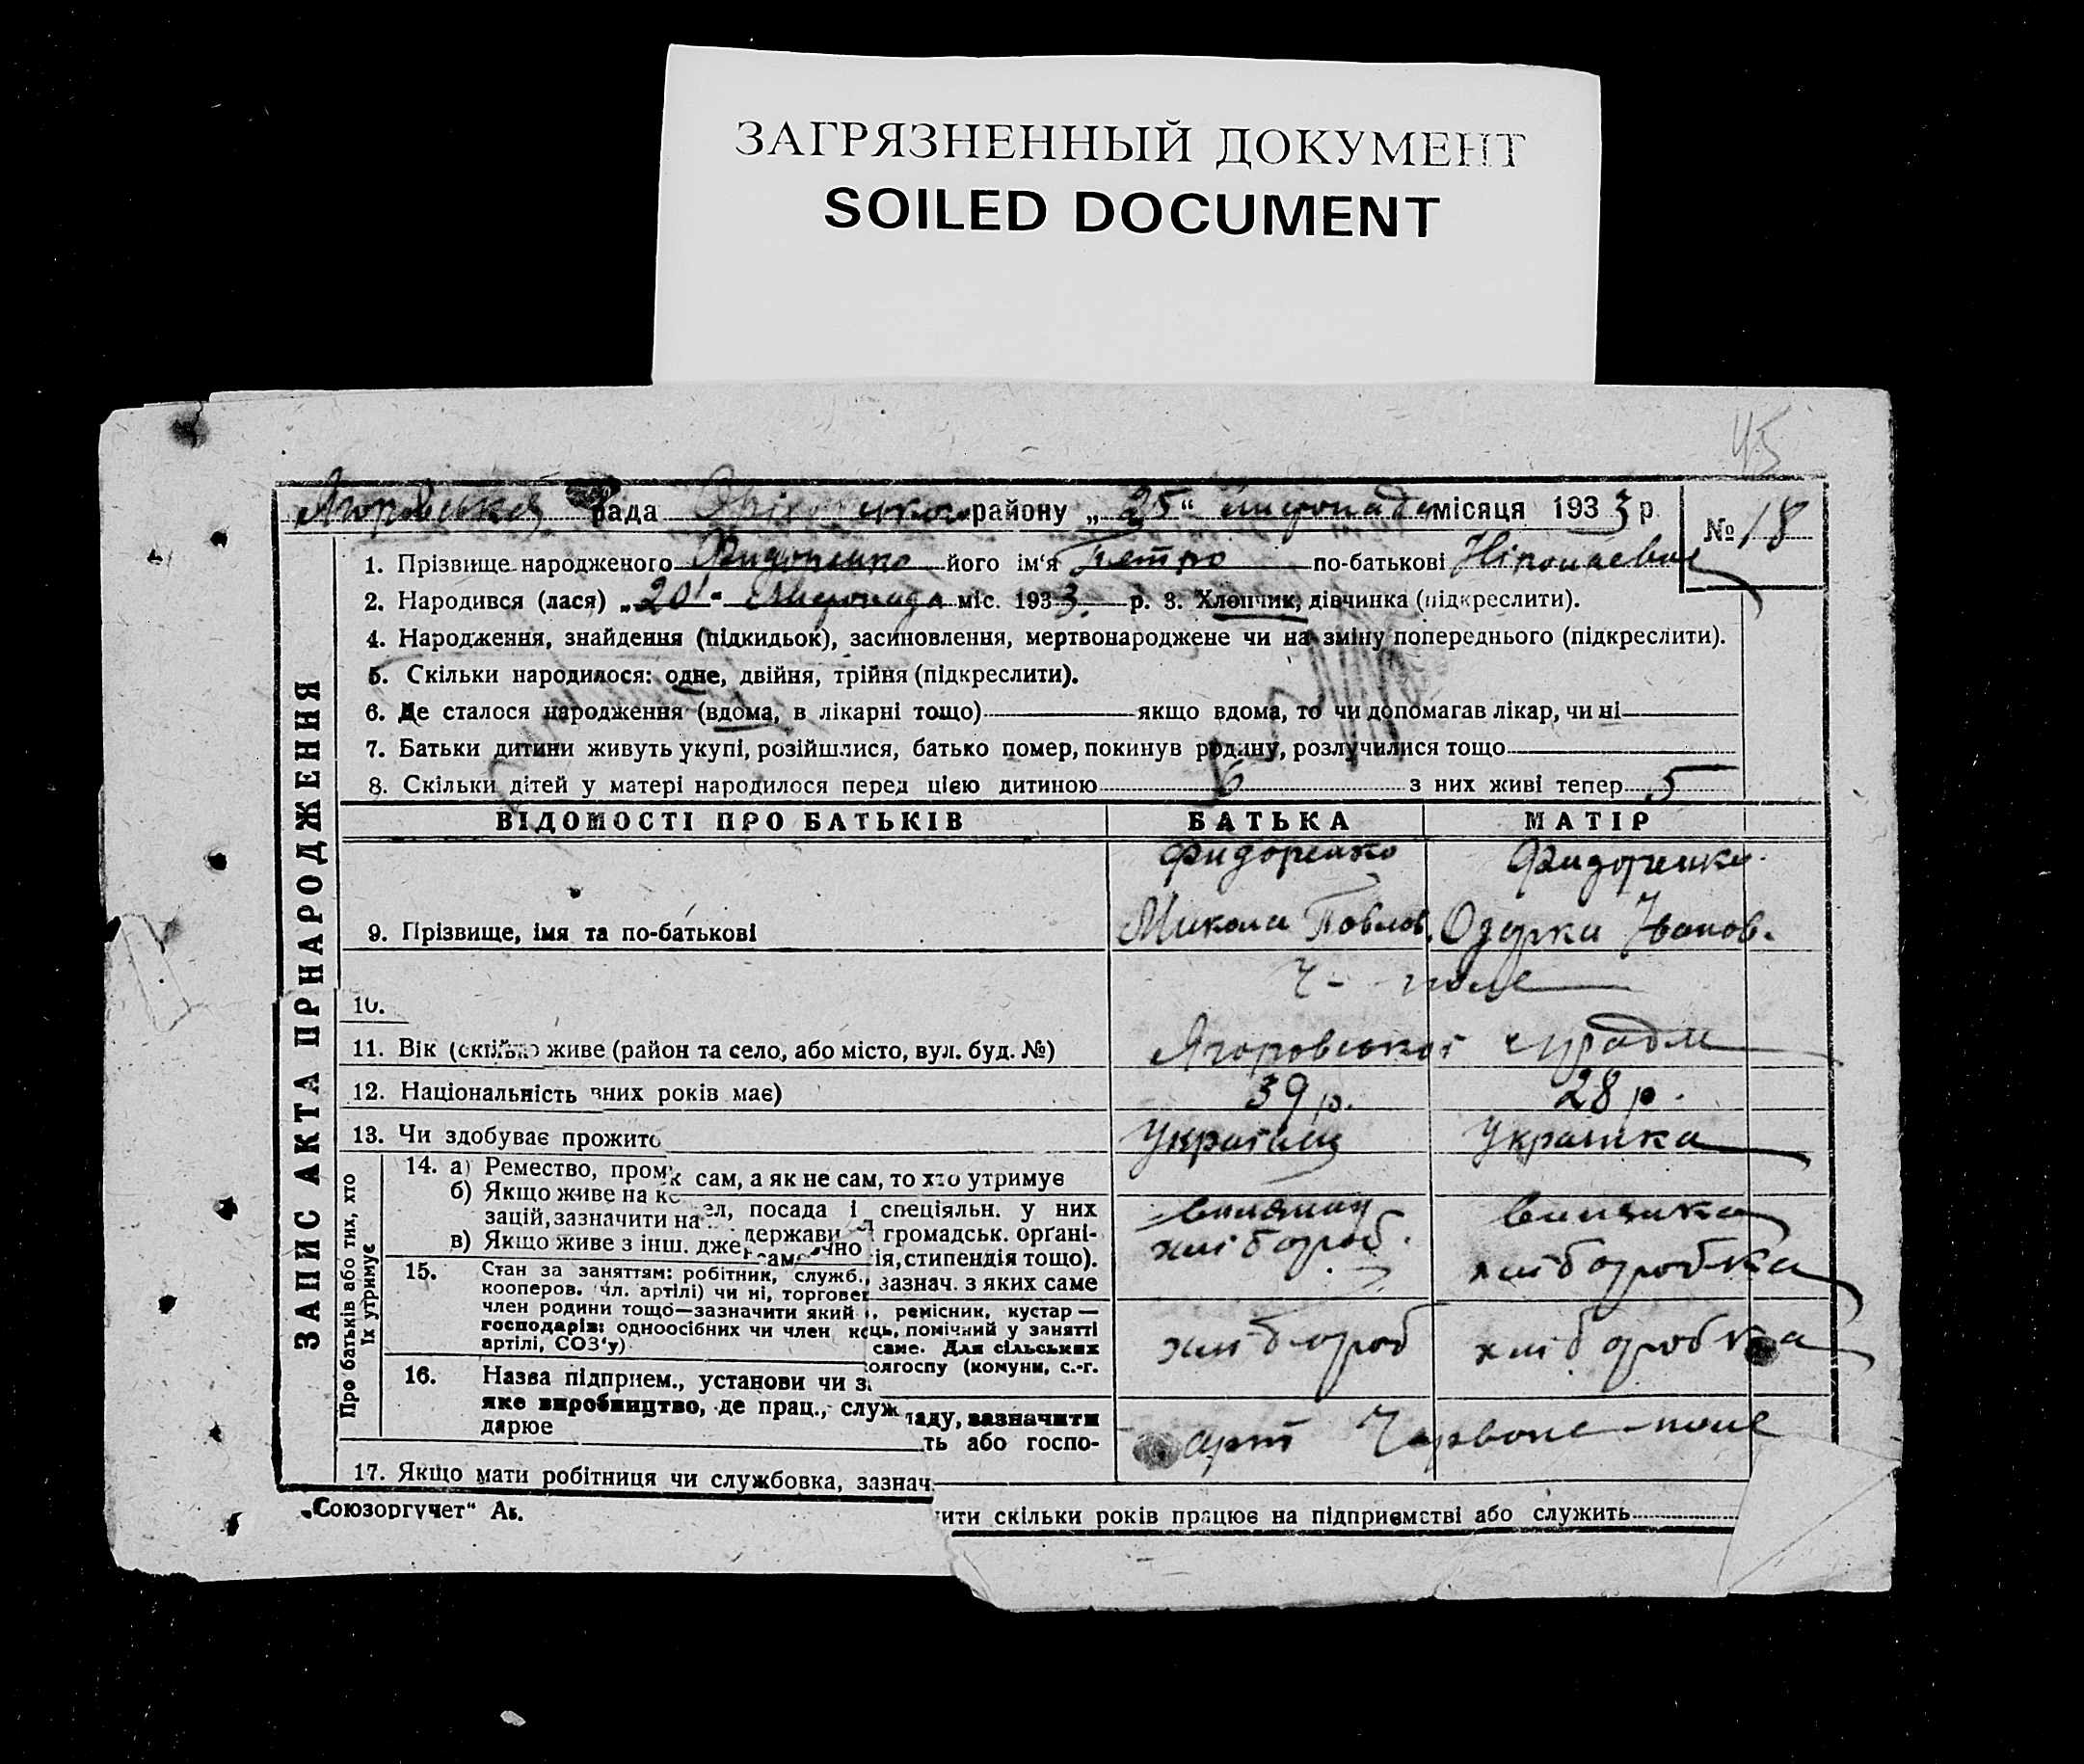 ЗАГРЯЗНЕННЫЙ ДОКУМЕНТ
SOILED DOCUMENT
45
Ягорівська рада району „25“ листопада місяця 1933 р. № 18
ЗАПИС АКТА ПРНАРОДЖЕННЯ
1. Прізвище народженого Фидоренко його ім'я Петро по-батькові Ніколаевич
2. Народився (лася) „20“ листопада міс. 1933 р. 3. Хлопчик, дівчинка (підкреслити).
4. Народження, знайдення (підкидьок), засиновлення, мертвонароджене чи на зміну попереднього (підкреслити).
5. Скільки народилося: одне, двійня, трійня (підкреслити).
6. Де сталося народження (вдома, в лікарні тощо) якщо вдома, то чи допомагав лікар, чи ні
7. Батьки дитини живуть укупі, розійшлися, батько помер, покинув родину, розлучилися тощо
8. Скільки дітей у матері народилося перед цією дитиною 6 з них живі тепер 5
ВІДОМОСТІ ПРО БАТЬКІВ БАТЬКА МАТІР
Фидоренко Фидоренко
9. Прізвище, імя та по-батькові Микола Повлов. Одарка Іванов.
Ч- поле
10.
11. Вік (скілько живе (район та село, або місто, вул. буд. №) Ягоровської с/ради
12. Національність вних років має) 39 р. 28 р.
13. Чи здобуває прожито Українец Українка
Про батьків або тих, хто їх утримує
14. а) Ремество, пром к сам, а як не сам, то хто утримує
б) Якщо живе на ко ел, посада і спеціяльн. у них
зацій, зазначити на держави й громадськ. органі-
в) Якщо живе з інш. дже само очно ія, стипендія тощо).
хлібороб. хліборобка
15. Стан за заняттям: робітник, служб., зазнач. з яких саме
кооперов. чл. артілі) чи ні, торговец
член родини тощо—зазначити який ., ремісник, кустар —
господарів: одноосібних чи член коць, помічний у занятті
артілі, СОЗ'у) саме. Для сільських
олгоспу (комуни, с.-г.
хлібороб хліборобка
16. Назва підприєм., установи чи з
яке виробництво, де прац., служ ладу, зазначити
дарює ть або госпо-
арт Червоне-поле
17. Якщо мати робітниця чи службовка, зазнач
ити скільки років працює на підприємстві або служить
„Союзоргучет“